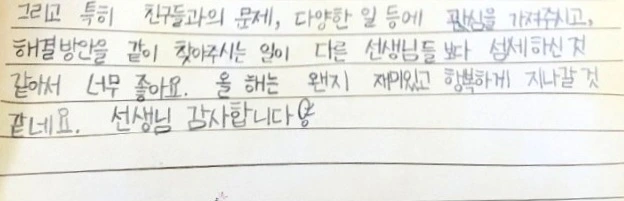 그리고 특히 친구들과의 문제, 다양한 일 등에 관심을 가져주시고,
해결방안을 같이 찾아주시는 일이 다른 선생님들 보다 섬세하신 것
같아서 너무 좋아요. 올 해는 왠지 재미있고 행복하게 지나갈 것
같네요. 선생님 감사합니다